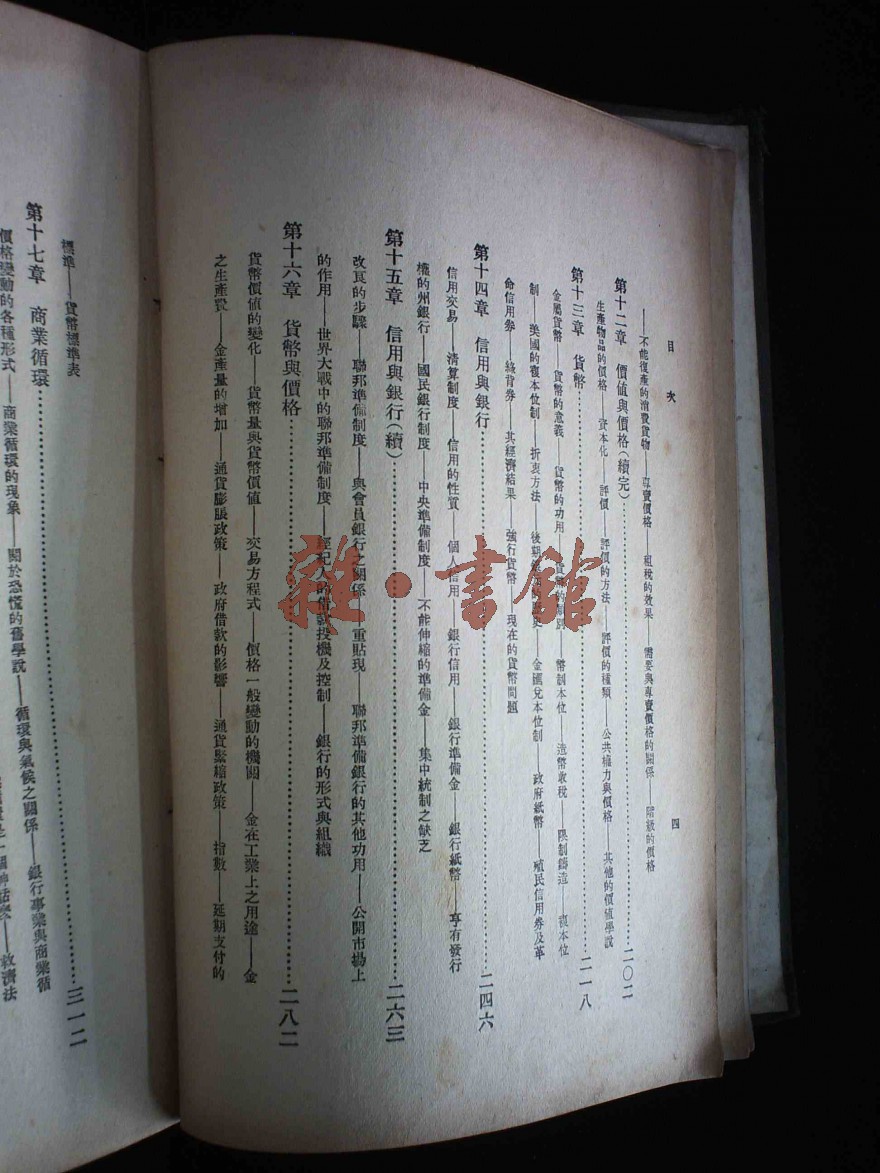 目次
四
——不能復產的消費貨物——專賣價格——租稅的效果——需要與專賣價格的關係——階級的價格
第十二章 價値與價格(續完)……二〇二
生產物品的價格——資本化——評價——評價的方法——評價的種類——公共權力與價格——其他的價値學說
第十三章 貨幣……二一八
金屬貨幣——貨幣的意義——貨幣的功用——幣制本位——造幣收稅——限制鑄造——複本位
制——美國的複本位制——折衷方法——後期——金匯兌本位制——政府紙幣——殖民信用券及革
命信用券——綠背券——其經濟結果——強行貨幣——現在的貨幣問題
第十四章 信用與銀行……二四六
信用交易——淸算制度——信用的性質——個人信用——銀行信用——銀行準備金——銀行紙幣——享有發行
權的州銀行——國民銀行制度——中央準備制度——不能伸縮的準備金——集中統制之缺乏
第十五章 信用與銀行(續)……二六三
改良的步驟——聯邦準備制度——與會員銀行之關係——重貼現——聯邦準備銀行的其他功用——公開市場上
的作用——世界大戰中的聯邦準備制度——經紀人的借款投機及控制——銀行的形式與組織
第十六章 貨幣與價格……二八二
貨幣價値的變化——貨幣量與貨幣價値——交易方程式——價格一般變動的機關——金在工業上之用途——金
之生產費——金產量的增加——通貨膨脹政策——政府借款的影響——通貨緊縮政策——指數——延期支付的
標準——貨幣標準表
第十七章 商業循環……三一二
價格變動的各種形式——商業循環的現象——關於恐慌的舊學說——循環與氣候之關係——銀行事業與商業循
救濟法
雜·書館